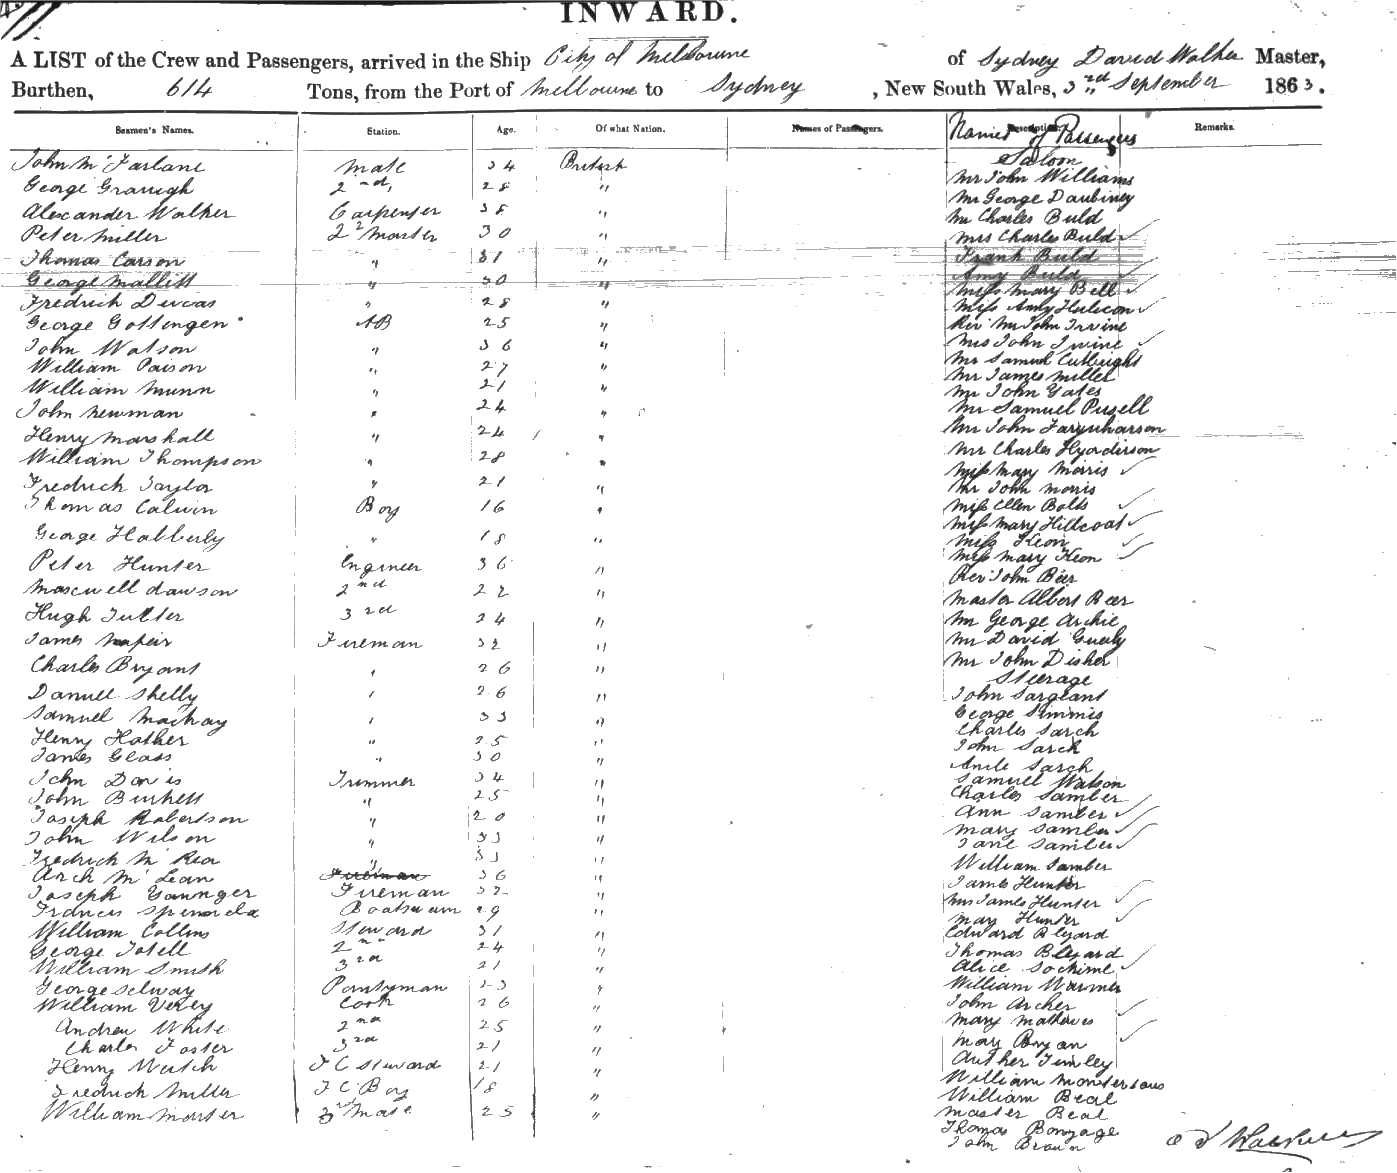 INWARD.
A LIST of the Crew and Passengers, arrived in the Ship City of Melbourne of Sydney David Walker Master,
Burthen, 614 Tons, from the Port of Melbourne to Sydney, New South Wales, 3rd September 1863.
Seamen's Names. Station. Age. Of what Nation. Names of Passengers. Description. Remarks.
Names of Passengers
Saloon
John McFarlane Mate 34 British
George 2nd, 28 "
Alexander Walker Carpenter 38 "
Peter Miller 2nd Master 30 "
Thomas Carson " 31 "
George Mallitt " 30 "
Fredrick Ducas " 28 "
George Gottengen AB 25 "
John Watson " 36 "
William Paison " 27 "
William Munn " 21 "
John Newman " 24 "
Henry Marshall " 24 "
William Thompson " 28 "
Fredrick Taylor " 21 "
Thomas Calwin Boy 16 "
George Habberly " 18 "
Peter Hunter Engineer 36 "
Maxwell dawson 2nd 22 "
Hugh Tutter 3rd 24 "
James Napier Fireman 32 "
Charles Bryant " 26 "
Daniell Shelly " 26 "
Samuel Mackay " 33 "
Henry Hather " 25 "
James Glass " 30 "
John Davis Trimmer 34 "
John Burkett " 25 "
Joseph Robertson " 20 "
John Wilson " 33 "
Fredrick McRea " 33 "
Arch McLean Fireman 36 "
Joseph Younger Fireman 32 "
Francis Boatswain 29 "
William Collins Steward 31 "
George Totell 2nd 24 "
William Smith 3rd 21 "
George Selway Pantryman 23 "
William Verey Cook 26 "
Andrew White 2nd 25 "
Charles Foster 3rd 21 "
Henry Watch F C Steward 21 "
Fredrick Miller F C Boy 18 "
William Monster 3rd Mate 25 "
Mr John Williams
Mr George Daubiney
Mr Charles Buld
Mrs Charles Buld
Frank Buld
Amy Buld
Miss Mary Bell
Miss Amy
Rev Mr John Irvine
Mrs John Irvine
Mr Samuel Cutbright
Mr James Miller
Mr John Yates
Mr Samuel Pusell
Mr John Farquharson
Mr Charles Hyorderson
Miss Mary Morris
Mr John Morris
Miss Ellen Bolts
Miss Mary Hillcoat
Miss Keon
Miss Mary Keon
Rev John Beer
Master Albert Beer
Mr George Archie
Mr David
Mr John Disher
Steerage
John Sargeant
George Simmis
Charles Sarch
John Sarch
Sarch
Samuel Watson
Charles Samber
Ann Samber
Mary Samber
Jane Samber
William Samber
James Hunter
Mrs James Hunter
Mary Hunter
Edward Blezard
Thomas Blezard
Alice Sochime
William Warmer
John Archer
Mary Mathews
Mary Bryan
Auther Timley
William
William Beal
Master Beal
Thomas Bonzage
John Braun